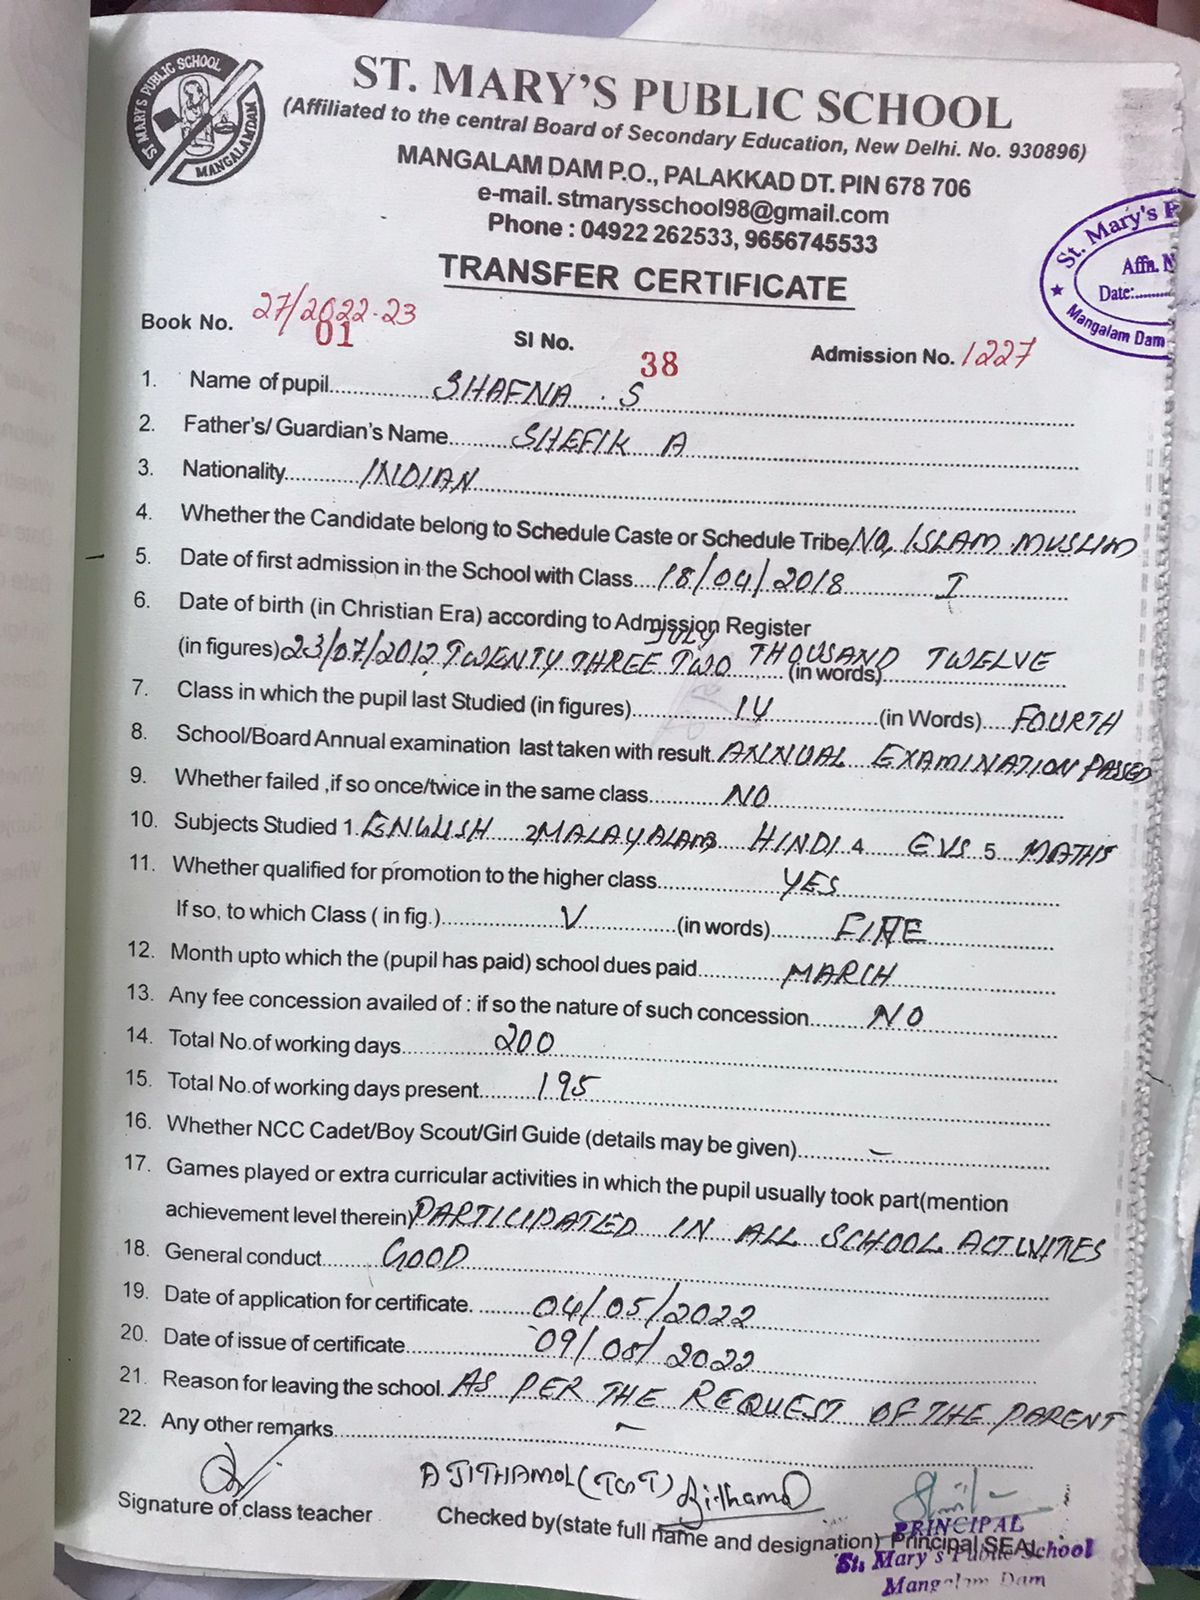 ST MARY'S PUBLIC SCHOOL
MANGALAMDAM
ST. MARY'S PUBLIC SCHOOL
(Affiliated to the central Board of Secondary Education, New Delhi. No. 930896)
MANGALAM DAM P.O., PALAKKAD DT. PIN 678 706
e-mail. stmarysschool98@gmail.com
Phone : 04922 262533, 9656745533
St. Mary's P
Affn. N
Date:.........
Mangalam Dam
TRANSFER CERTIFICATE
Book No. 27/2022-23 01 Sl No. 38 Admission No. 1227
1. Name of pupil SHAFNA . S
2. Father's/ Guardian's Name SHEFIK A
3. Nationality INDIAN
4. Whether the Candidate belong to Schedule Caste or Schedule Tribe No, ISLAM MUSLIM
5. Date of first admission in the School with Class 18/04/2018 I
6. Date of birth (in Christian Era) according to Admission Register
(in figures) 23/07/2012 TWENTY THREE JULY TWO THOUSAND TWELVE (in words)
7. Class in which the pupil last Studied (in figures) IV (in Words) FOURTH
8. School/Board Annual examination last taken with result. ANNUAL EXAMINATION PASSED
9. Whether failed ,if so once/twice in the same class NO
10. Subjects Studied 1. ENGLISH 2 MALAYALAM 3 HINDI 4 EVS 5 MATHS
11. Whether qualified for promotion to the higher class YES
If so, to which Class ( in fig.) V (in words) FIVE
12. Month upto which the (pupil has paid) school dues paid MARCH
13. Any fee concession availed of : if so the nature of such concession NO
14. Total No.of working days 200
15. Total No.of working days present 195
16. Whether NCC Cadet/Boy Scout/Girl Guide (details may be given) –
17. Games played or extra curricular activities in which the pupil usually took part(mention
achievement level therein) PARTICIPATED IN ALL SCHOOL ACTIVITIES
18. General conduct GOOD
19. Date of application for certificate. 04/05/2022
20. Date of issue of certificate 09/05/2022
21. Reason for leaving the school. AS PER THE REQUEST OF THE PARENT
22. Any other remarks –
AJITHAMOL (TGT) Ajithamol
Signature of class teacher Checked by(state full name and designation) Principal SEAL
PRINCIPAL
St. Mary's Public School
Mangalam Dam